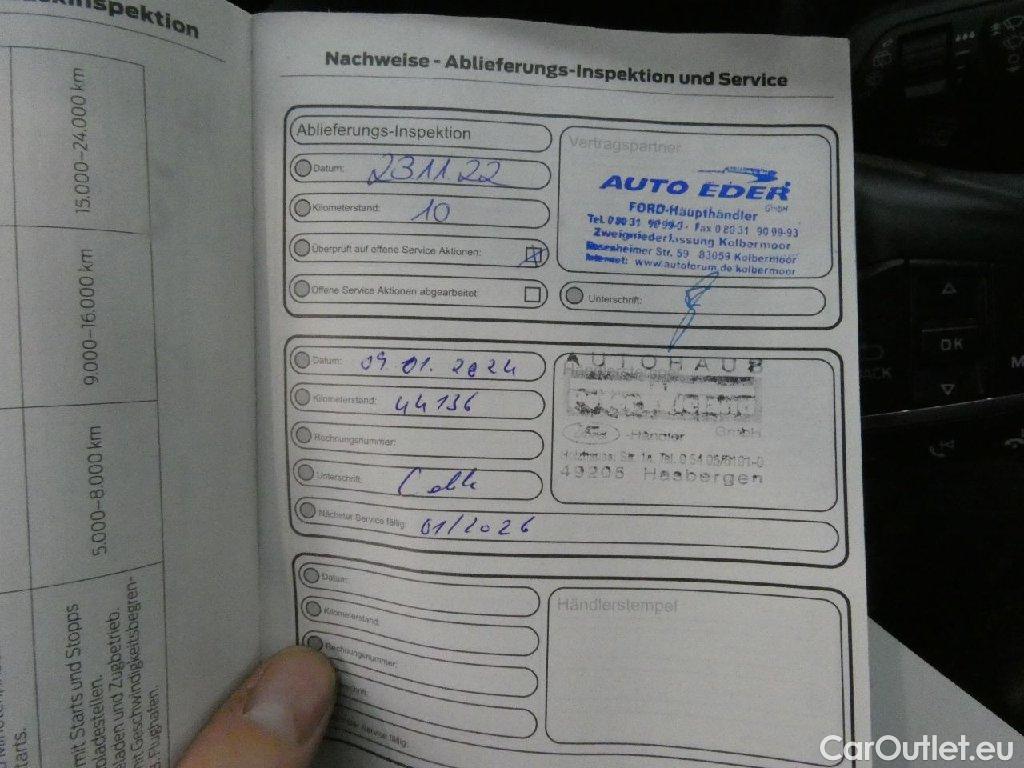 15.000–24.000 km
9.000–16.000 km
5.000–8.000 km
mit Starts und Stopps
laden und Zugbetrieb.
Flughafen.
Nachweise - Ablieferungs-Inspektion und Service
Ablieferungs-Inspektion
Datum: 23 11 22
Kilometerstand: 10
Überprüft auf offene Service Aktionen:
Offene Service Aktionen abgearbeitet:
Vertragspartner
AUTO EDER
GmbH
FORD-Haupthändler
Tel. 0 80 31 90 99-0 · Fax 0 80 31 90 99-93
Zweigniederlassung Kolbermoor
Rosenheimer Str. 59 83059 Kolbermoor
Internet: www.autoforum.de/kolbermoor
Unterschrift:
Datum: 09.01.2024
Kilometerstand: 44136
Rechnungsnummer:
Unterschrift:
Nächster Service fällig: 01/2026
AUTOHAUS
GmbH
-Händler
Str. 1a, Tel.
49205 Hasbergen
Datum:
Kilometerstand:
Rechnungsnummer:
Service fällig:
Händlerstempel
OK
CarOutlet.eu